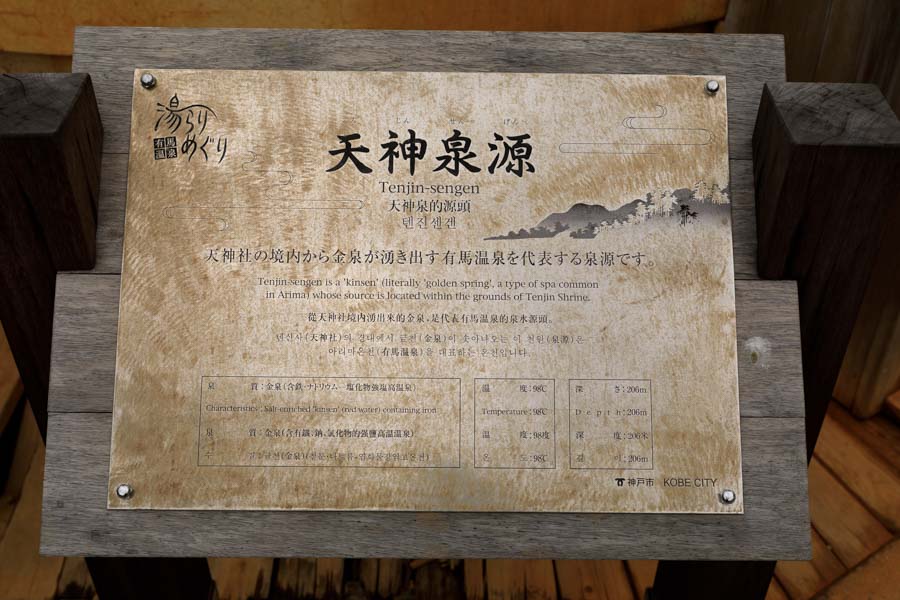 湯らり
めぐり
有馬
温泉
てん じん せん げん
天神泉源
Tenjin-sengen
天神泉的源頭
텐진센겐
天神社の境内から金泉が湧き出す有馬温泉を代表する泉源です。
Tenjin-sengen is a 'kinsen' (literally 'golden spring', a type of spa common
in Arima) whose source is located within the grounds of Tenjin Shrine.
從天神社境内湧出來的金泉,是代表有馬温泉的泉水源頭。
텐진사(天神社)의 경내에서 금천(金泉)이 솟아나오는 이 천원(泉源)은
아리마온천(有馬温泉)을 대표하는 온천입니다.
泉 質:金泉(含鉄-ナトリウム-塩化物強塩高温泉)
Characteristics : Salt-enriched 'kinsen' (red water) containing iron
泉 質:金泉(含有鐵、鈉、氯化物的强鹽高温温泉)
수 질:금천(金泉)
温 度:98℃
Temperature:98℃
温 度:98度
온 도:98℃
深 さ:206m
Depth:206m
深 度:206米
깊 이:206m
神戸市 KOBE CITY